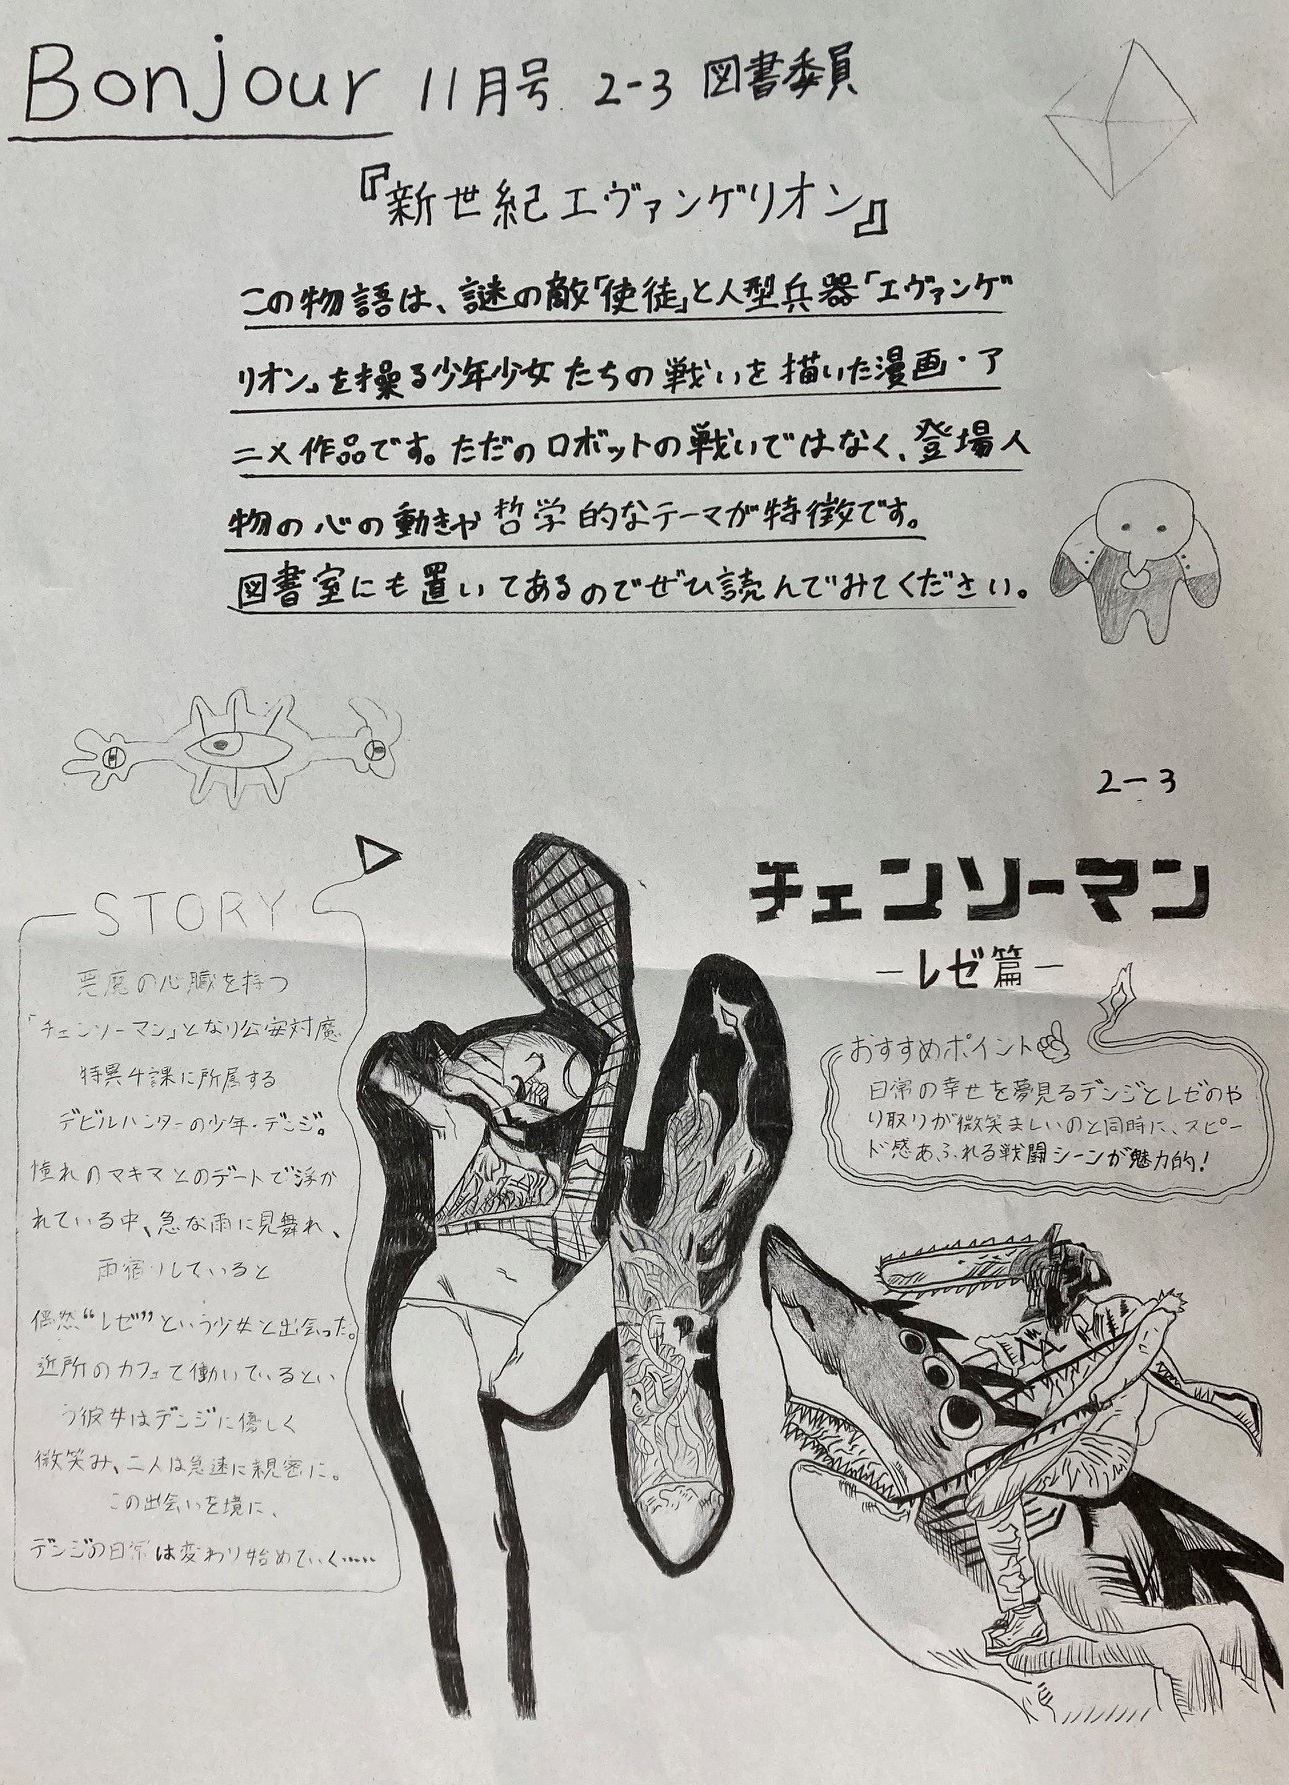 Bonjour 11月号 2-3 図書委員
『新世紀エヴァンゲリオン』
この物語は、謎の敵「使徒」と人型兵器「エヴァンゲ
リオン」を操る少年少女たちの戦いを描いた漫画・ア
ニメ作品です。ただのロボットの戦いではなく、登場人
物の心の動きや哲学的なテーマが特徴です。
図書室にも置いてあるのでぜひ読んでみてください。
2-3
チェンソーマン
-レゼ篇-
STORY
悪魔の心臓を持つ
「チェンソーマン」となり公安対魔
特異4課に所属する
デビルハンターの少年・デンジ。
憧れのマキマとのデートで浮か
れている中、急な雨に見舞れ、
雨宿りしていると
偶然“レゼ”という少女と出会った。
近所のカフェで働いているとい
う彼女はデンジに優しく
微笑み、二人は急速に親密に。
この出会いを境に、
デンジの日常は変わり始めていく……
おすすめポイント
日常の幸せを夢見るデンジとレゼのや
り取りが微笑ましいのと同時に、スピー
ド感あふれる戦闘シーンが魅力的!